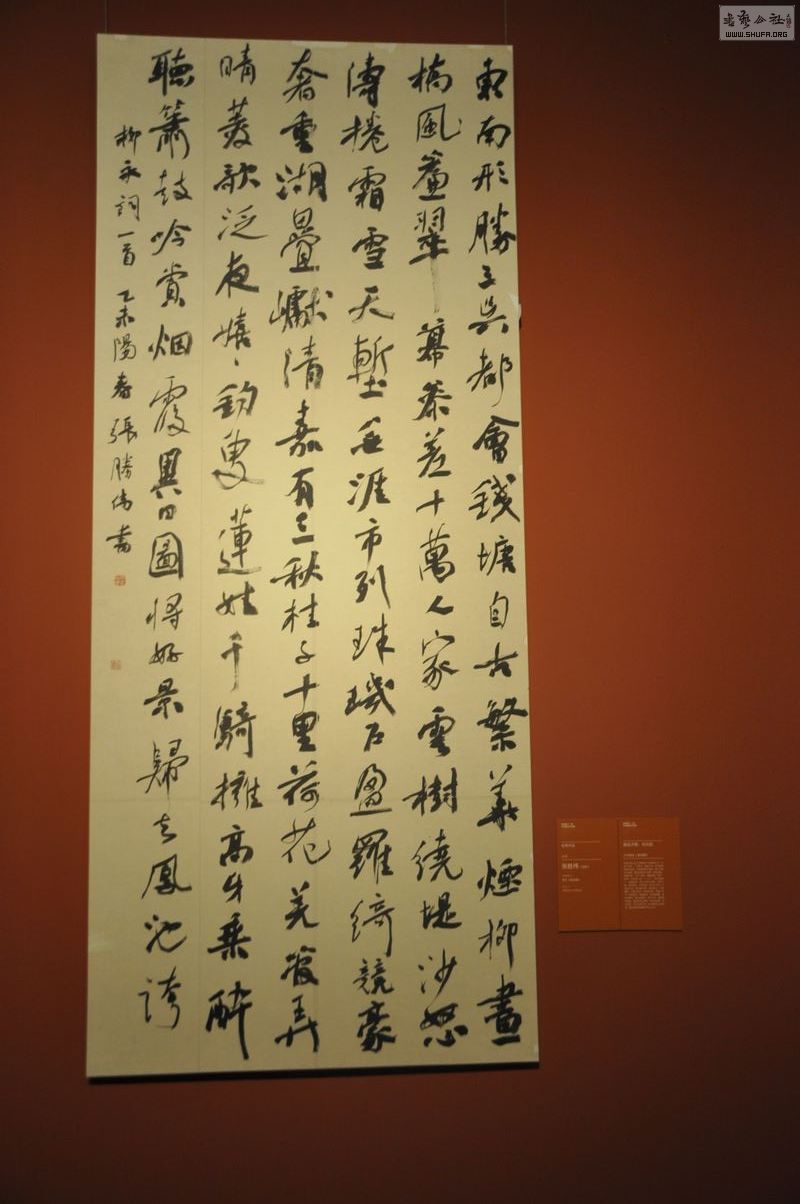 東南形勝三吳都會錢塘自古繁華煙柳畫
橋風簾翠幕參差十萬人家雲樹繞堤沙怒
濤捲霜雪天塹無涯市列珠璣戶盈羅綺競豪
奢重湖疊巘清嘉有三秋桂子十里荷花羌管弄
晴菱歌泛夜嬉〻釣叟蓮娃千騎擁高牙乘醉
聽簫鼓吟賞烟霞異日圖將好景歸去鳳池誇
柳永詞一首 乙未陽春 張勝偉書
WWW.SHUFA.ORG